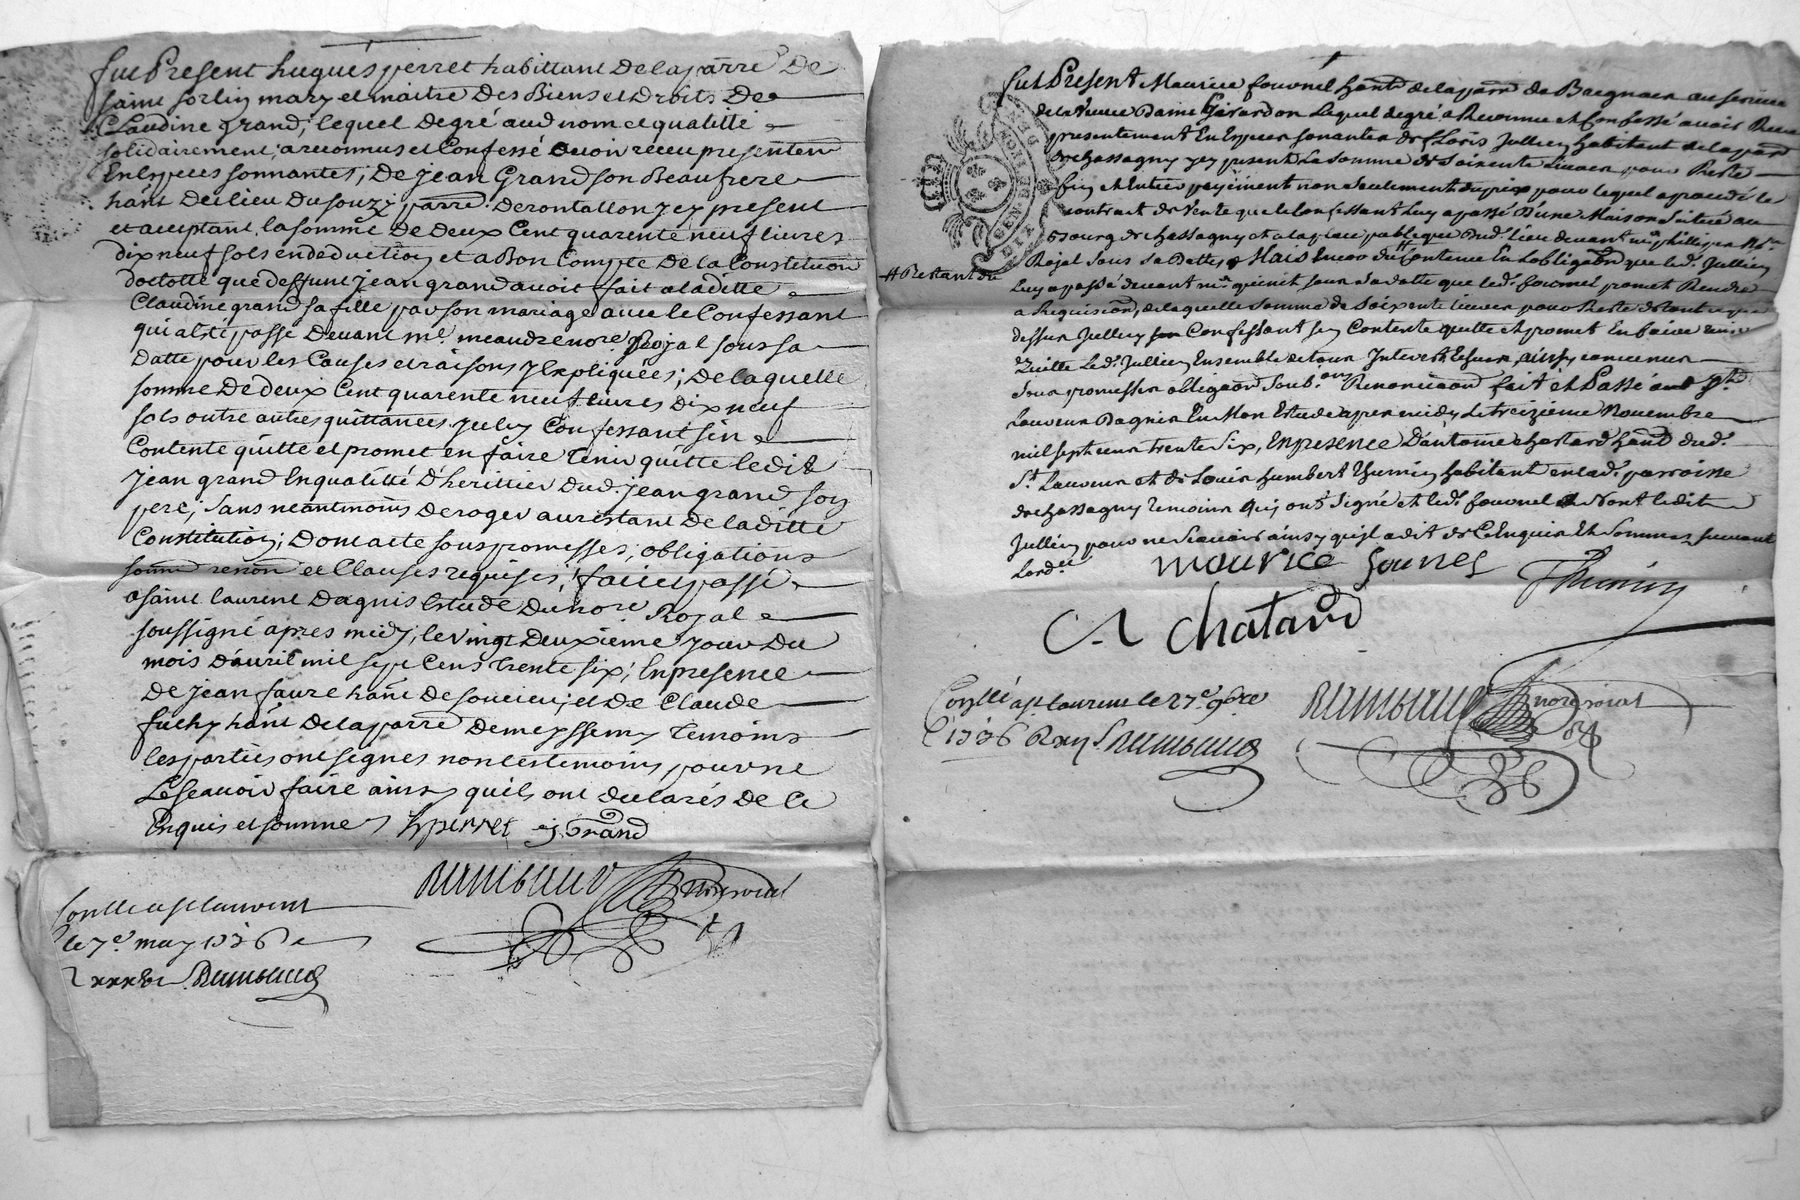 fut Present hugues perret habittant De la parre De
saint sorlin mary et maitre Des Biens et Droits De
Claudine grand, lequel degré aud nom et qualitté
solidairement, a reconnus et Confessé avoir receu presentem
En Especes sonnantes, De jean Grand son Beaufrere
hant du lieu Du souzy parre De rontallon y ey present
et aceptant, la somme De deux Cent quarente neuf livres
dix neuf sols en deduction et a Bon Compte De la Constitution
doctotte que deffunt jean grand avoit fait a laditte
Claudine grand sa fille par son mariage avec le Confessant
qui a esté passé Devant me. meandre nore Royal sous sa
datte pour les Causes et raisons y Expliquées; De laquelle
somme De deux Cent quarente neuf livres Dix neuf
sols outre autres quittances, Iceluy Confessant s'en
Contente quitte et promet en faire tenir quitte ledit
jean grand En qualitté D'herittier dud. jean grand son
pere, sans neantmoins Deroger au restant De laditte
Constitution; Dont acte sous promesses, obligations
soum renon et Clauses requises, fait et passé
a saint laurent Dagnis Estude Du nore Royal
soussigné apres midy, le vingt Deuxième jour Du
mois D'avril mil sept Cens trente six, En presence
De jean faure hant De soucieu, et De Claude
fuchy hant De la parre De meyssemy temoins
les parties ont signés non les temoins pour ne
le scavoir faire ainsy qu'ils ont declarés de ce
Enquis et sommes hperret j Grand
Conlle a st laurent
le 7e may 1736
fut Present Maurice fournel hant de la parr de Brignais au service
de la veuve Dame Girardon Lequel degré a Reconnu et Confessé avoir Receu
presentement En Especes sonnantes de Cloris Jullien habitant de la parr
de chassagny y ey present La somme de soixente Livres pour Reste
fin et Entier payement non seulement du prix pour lequel a procédé le
contract de vente que le Confessant Luy a passé D'une Maison Située au
Bourg de chassagny et a la place publique dud. lieu devant me phillipes Nre
Royal sous sa Datte, Mais Encor du Contenu En Lobligaon que led. Jullien
# Restant de
Luy a passé devant me sous sa datte que led. fournel promet Rendre
a Requision, de laquelle somme de Soixente livres pour Reste de tout ce que
dessus Jullien Confessant s'en Contente quitte et promet En faire tenir
Quitte Led. Jullien Ensemble de tous Interests Echus, ainsy convenu
sous promesses obligaons Soub.ons Renonciaons fait et Passé aud St
Laurent Dagnis En Mon Estude apres midy Le treizieme Novembre
mil sept cens trente six, En presence D'antoine chatard hant dud.
St. Laurens et de Louis humbert Thurnin habitant en lad. parroisse
de chassagny temoins qui ont signé et led. fournel Nont ledit
Jullien pour ne scavoir ainsy qu'il a dit de ce Enquis Et Sommes suivant
Lordce
maurice fournel
A chatard
Conllé a st laurent le 27e 9bre
1736